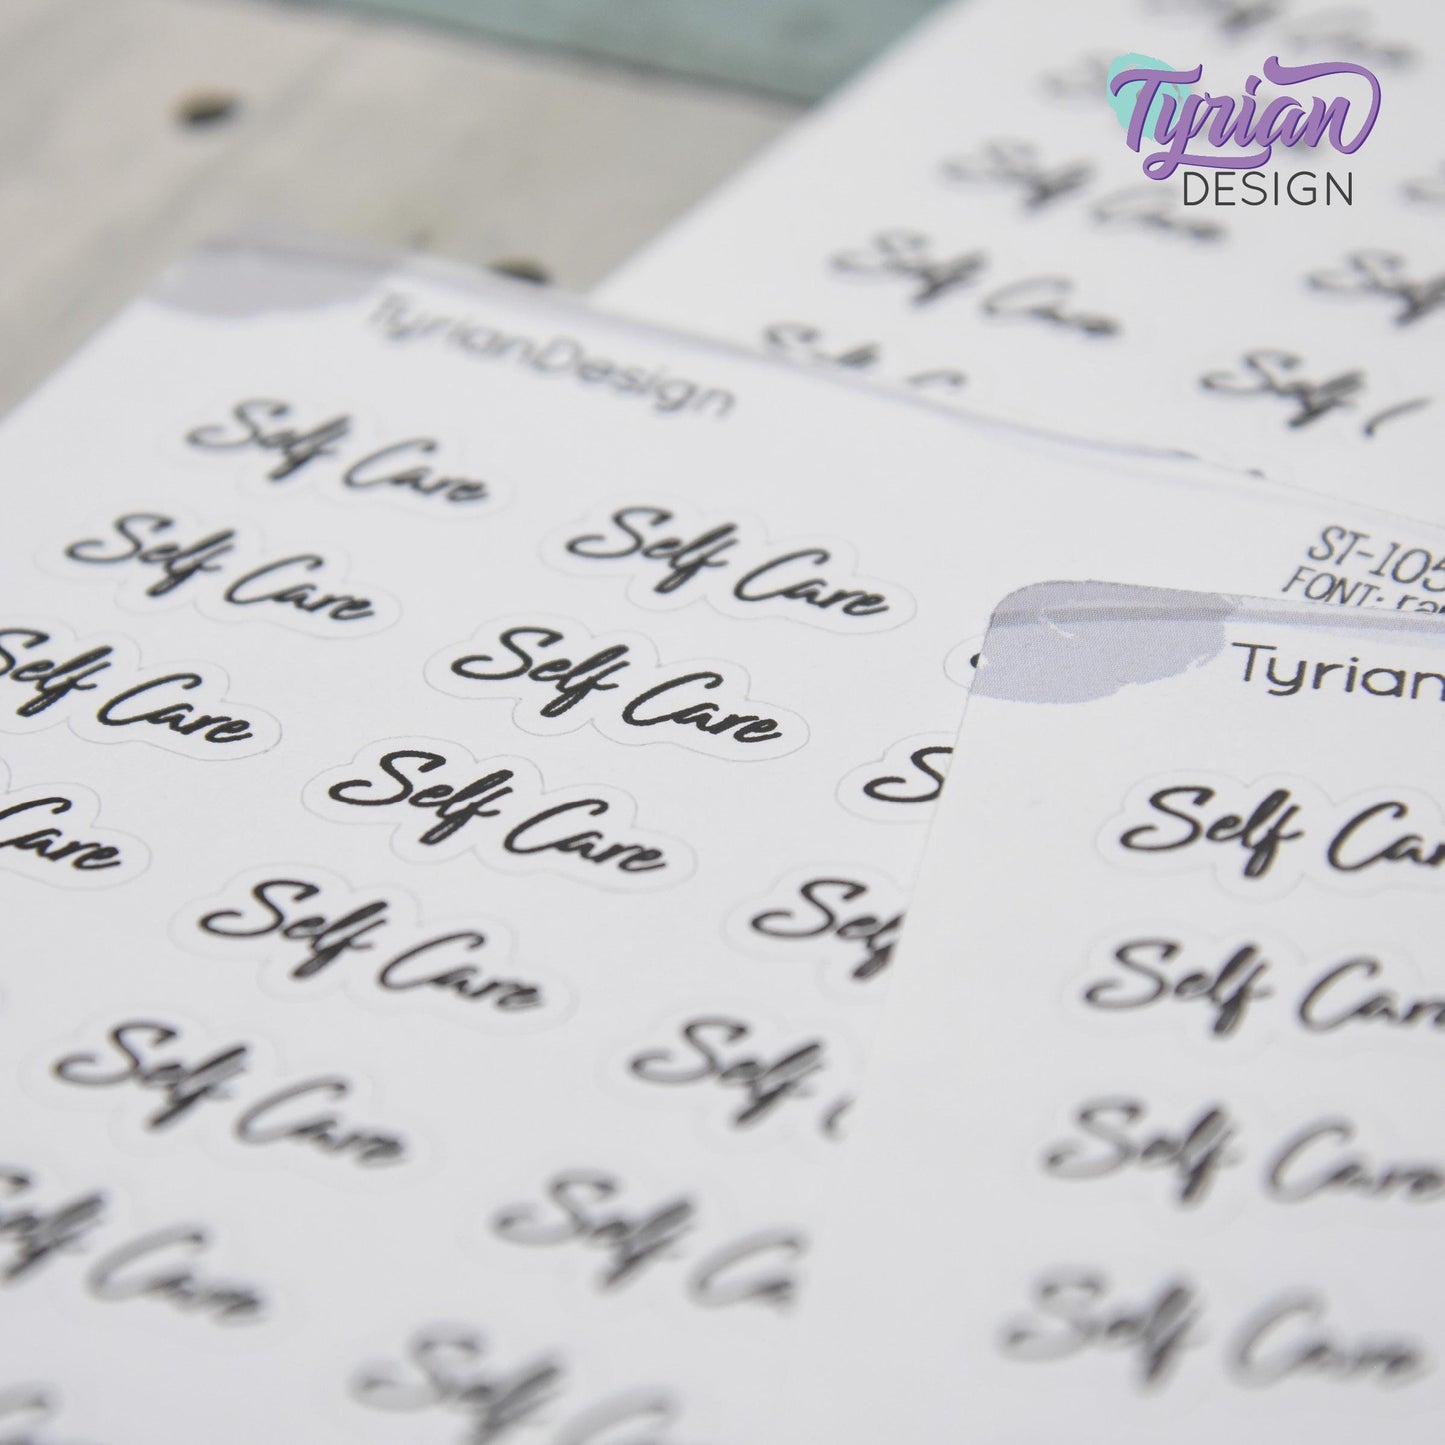 Tyrian
DESIGN
Self Care
Self Care
Self Care
Self
Self
TyrianDesign
Self Care
Self Care
Self Care
Self Care
Self Care
Self Care
Self Care
Self Care
Care
Self Care
Self
Self
Self Care
Self
Self Care
ST-105
FONT:
Tyrian
Self
Self
Self Care
Self Care